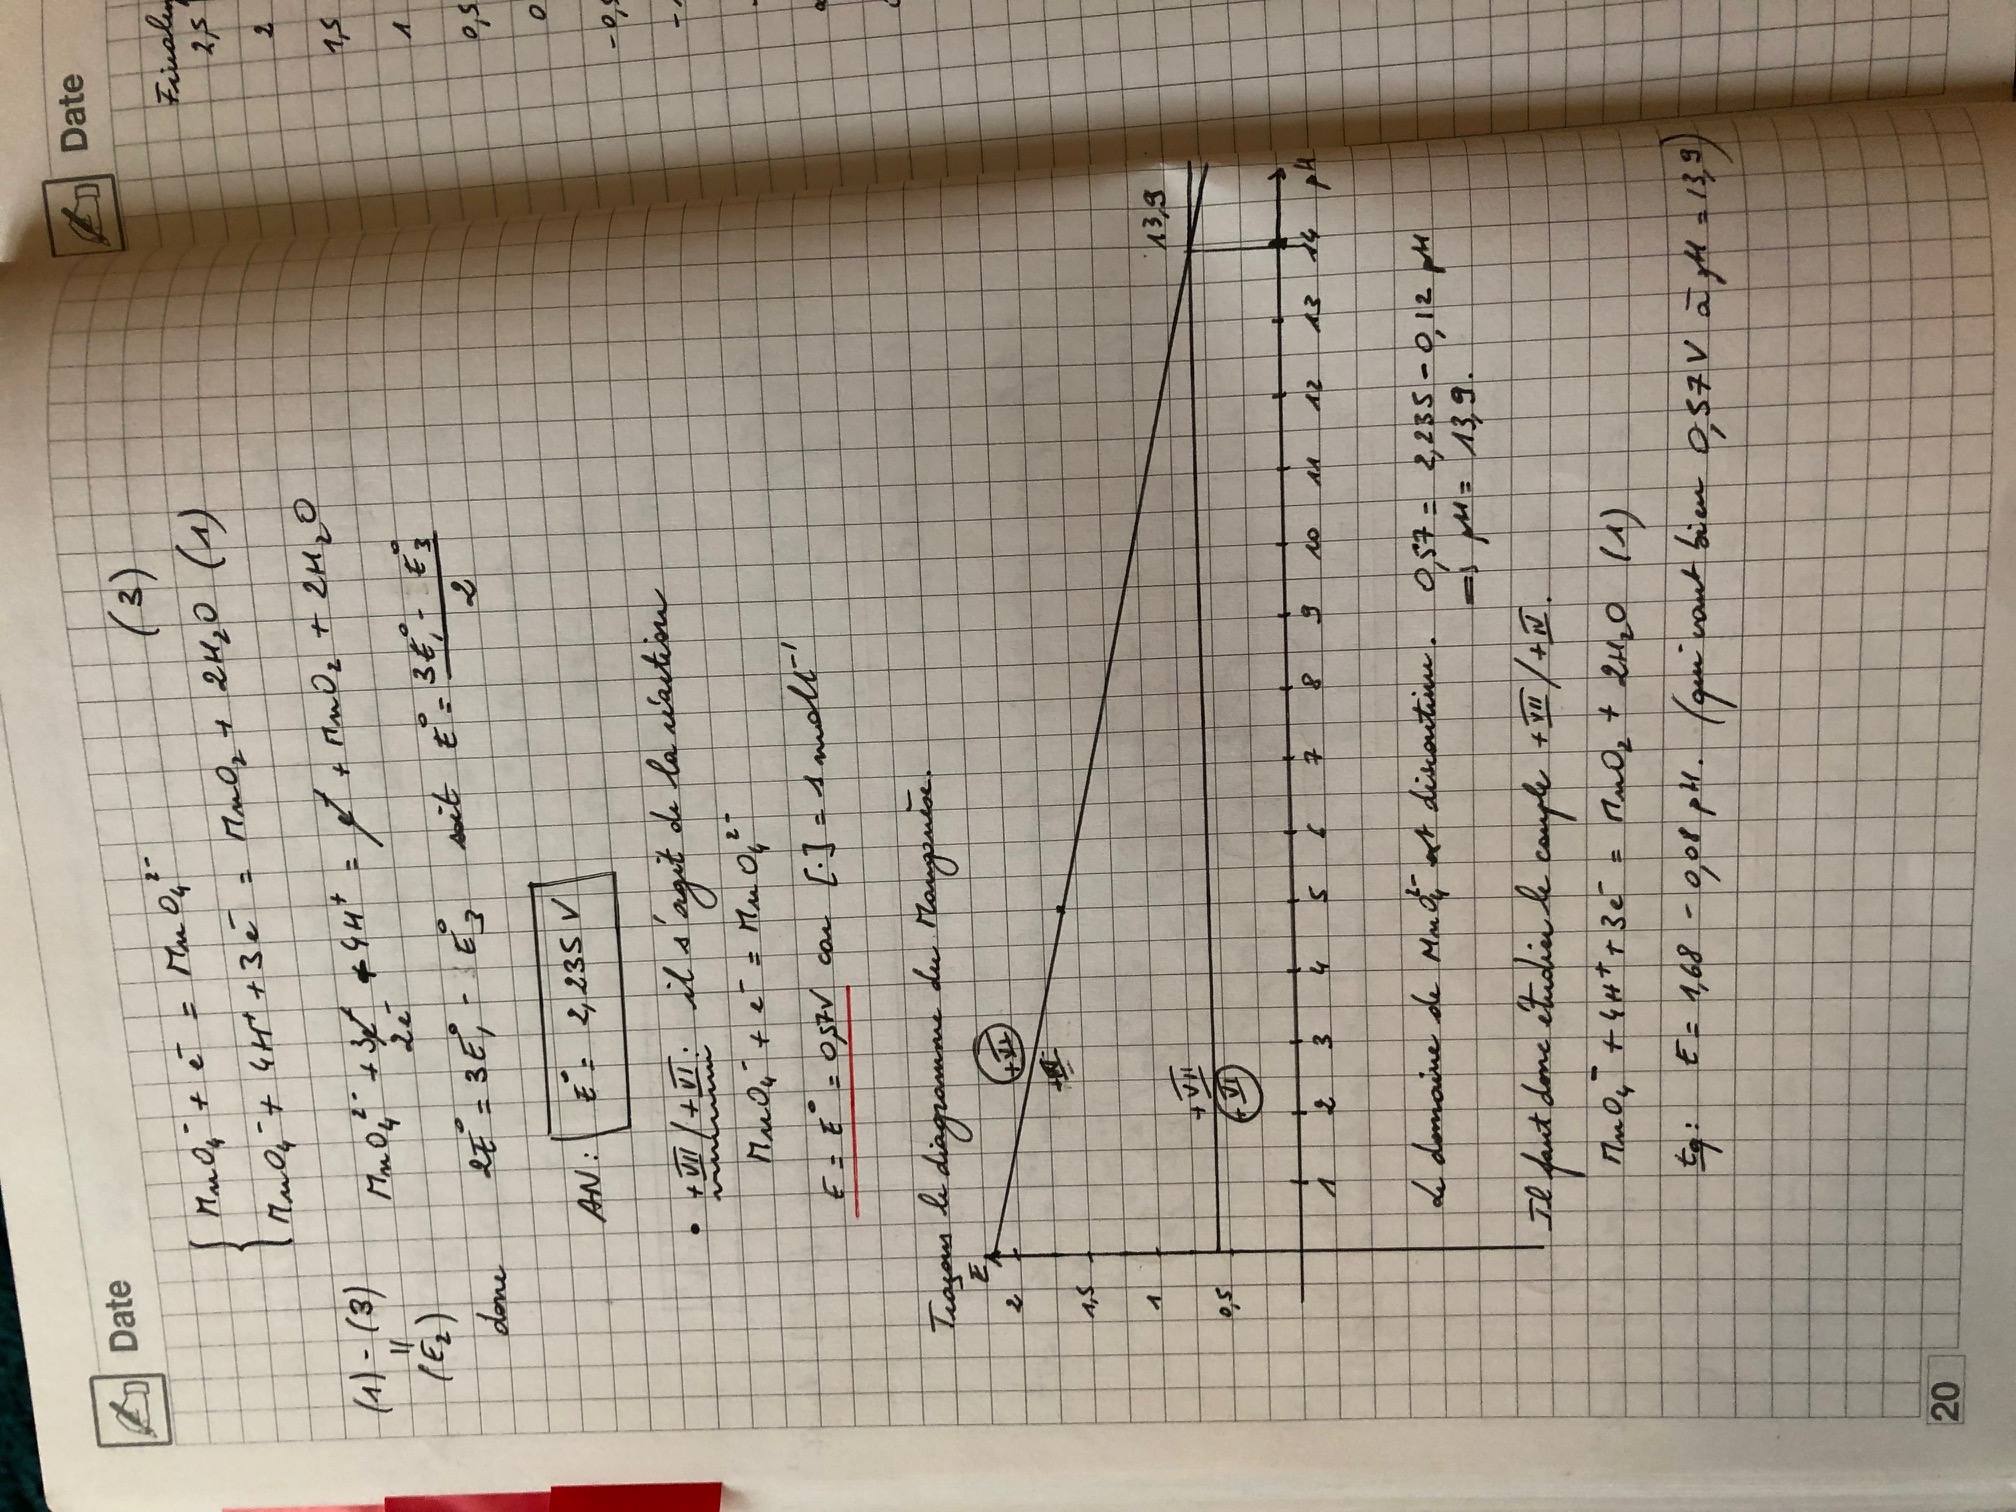 Date
(3)
MnO₄⁻ + e⁻ = MnO₄²⁻
MnO₄⁻ + 4H⁺ + 3e⁻ = MnO₂ + 2H₂O (1)
(1) - (3) MnO₄²⁻ + 3e⁻ + 4H⁺ = e⁻ + MnO₂ + 2H₂O
= 2e⁻
(E₂)
donc 2E° = 3E₁° - E₃° soit E° = (3E₁° - E₃°)/2
AN: E° = 2,235 V
• +VII / +VI : il s'agit de la réaction
MnO₄⁻ + e⁻ = MnO₄²⁻
E = E° = 0,57V car [.] = 1 mol L⁻¹
Traçons le diagramme du Manganèse.
E
2
1,5
1
0,5
+VI
+IV
+VII
+VI
13,9
1 2 3 4 5 6 7 8 9 10 11 12 13 14 pH
Le domaine de MnO₄²⁻ est discontinu. 0,57 = 2,235 - 0,12 pH
⇒ pH = 13,9.
Il faut donc étudier le couple +VII / +IV.
MnO₄⁻ + 4H⁺ + 3e⁻ = MnO₂ + 2H₂O (1)
tq: E = 1,68 - 0,08 pH. (qui vaut bien 0,57 V à pH = 13,9)
20
Date
2,5
2
1,5
1
0,5
0